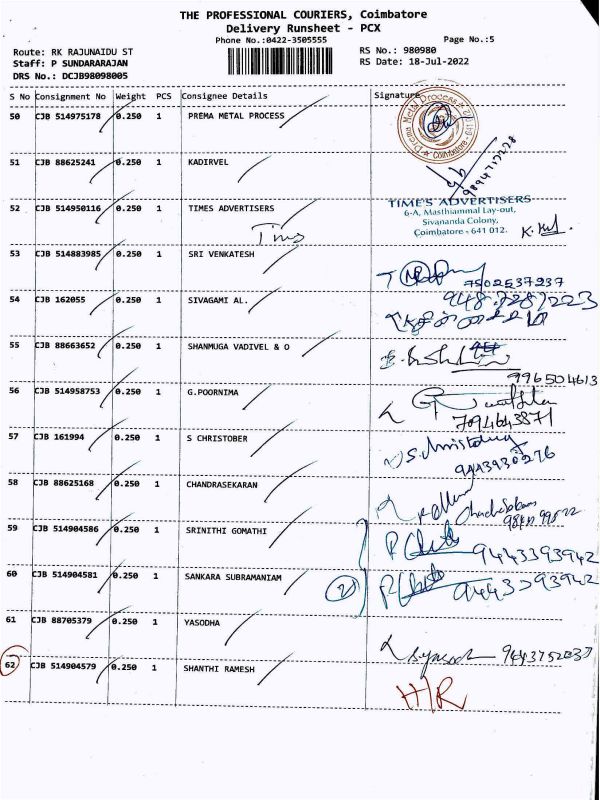 THE PROFESSIONAL COURIERS, Coimbatore
Delivery Runsheet - PCX
Phone No.:0422-3505555 Page No.:5
Route: RK RAJUNAIDU ST RS No.: 980980
Staff: P SUNDARARAJAN RS Date: 18-Jul-2022
DRS No.: DCJB98098005
S No Consignment No Weight PCS Consignee Details Signature
50 CJB 514975178 0.250 1 PREMA METAL PROCESS
51 CJB 88625241 0.250 1 KADIRVEL
52 CJB 514950116 0.250 1 TIMES ADVERTISERS
TIME'S ADVERTISERS
6-A, Masthiammal Lay-out,
Sivananda Colony,
Coimbatore - 641 012.
Tims
53 CJB 514883985 0.250 1 SRI VENKATESH
7502537237
54 CJB 162055 0.250 1 SIVAGAMI AL.
55 CJB 88663652 0.250 1 SHANMUGA VADIVEL & O
996504613
56 CJB 514958753 0.250 1 G.POORNIMA
7094643871
57 CJB 161994 0.250 1 S CHRISTOBER
9443930276
58 CJB 88625168 0.250 1 CHANDRASEKARAN
59 CJB 514904586 0.250 1 SRINITHI GOMATHI
9443393942
60 CJB 514904581 0.250 1 SANKARA SUBRAMANIAM
2
9443393942
61 CJB 88705379 0.250 1 YASODHA
9443752037
62 CJB 514904579 0.250 1 SHANTHI RAMESH
H/R